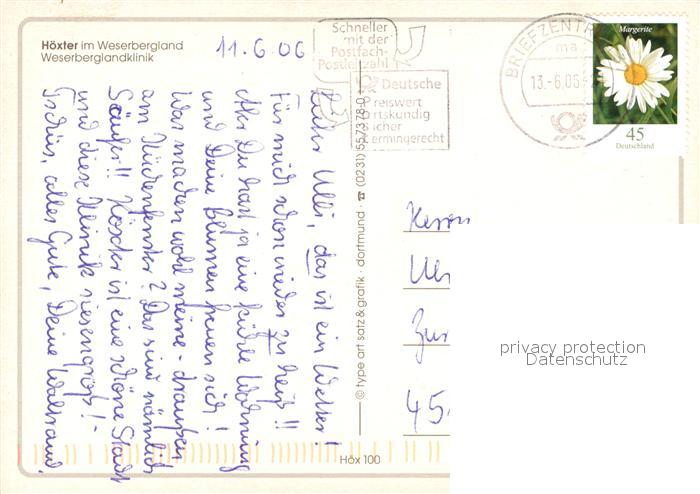 Höxter im Weserbergland
Weserberglandklinik
11.6.06
Schneller
mit der
Postfach-
Postleitzahl
Deutsche
Preiswert
Ortskundig
Sicher
Termingerecht
BRIEFZENTR
ma
13.-6.06
Margerite
45
Deutschland
Lieber Ulli, das ist ein Wetter!
Für mich schon wieder zu heiß!!
Aber Du hast ja eine kühle Wohnung
und Deine Blumen freuen sich!
Was machen wohl meine - draußen
am Küchenfenster? Das sind nämlich
Säufer!! Höxter ist eine schöne Stadt
und diese Klinik riesengroß! -
Tschüs, alles Gute, Deine Waltraud.
© type art satz & grafik · dortmund · ☎ (0231) 557378-0
Herrn
Ul
Zur
45
Höx 100
privacy protection
Datenschutz